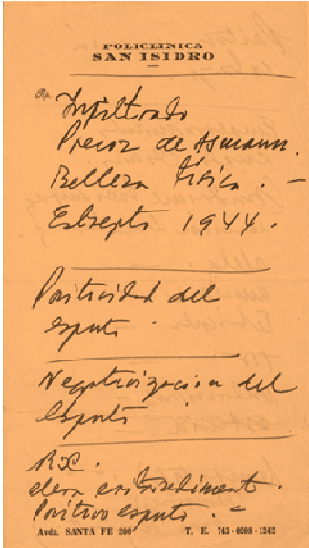 POLICLINICA
SAN ISIDRO
Rp.
Infiltrado
Precoz de Asmann.
Belleza Física. -
Exbsepto 1944.
Positividad del
esputo.
Negativizacion del
Esputo
RX.
Positivo esputo. -
Avda. SANTA FE 200 T. E. 743-0608-1242